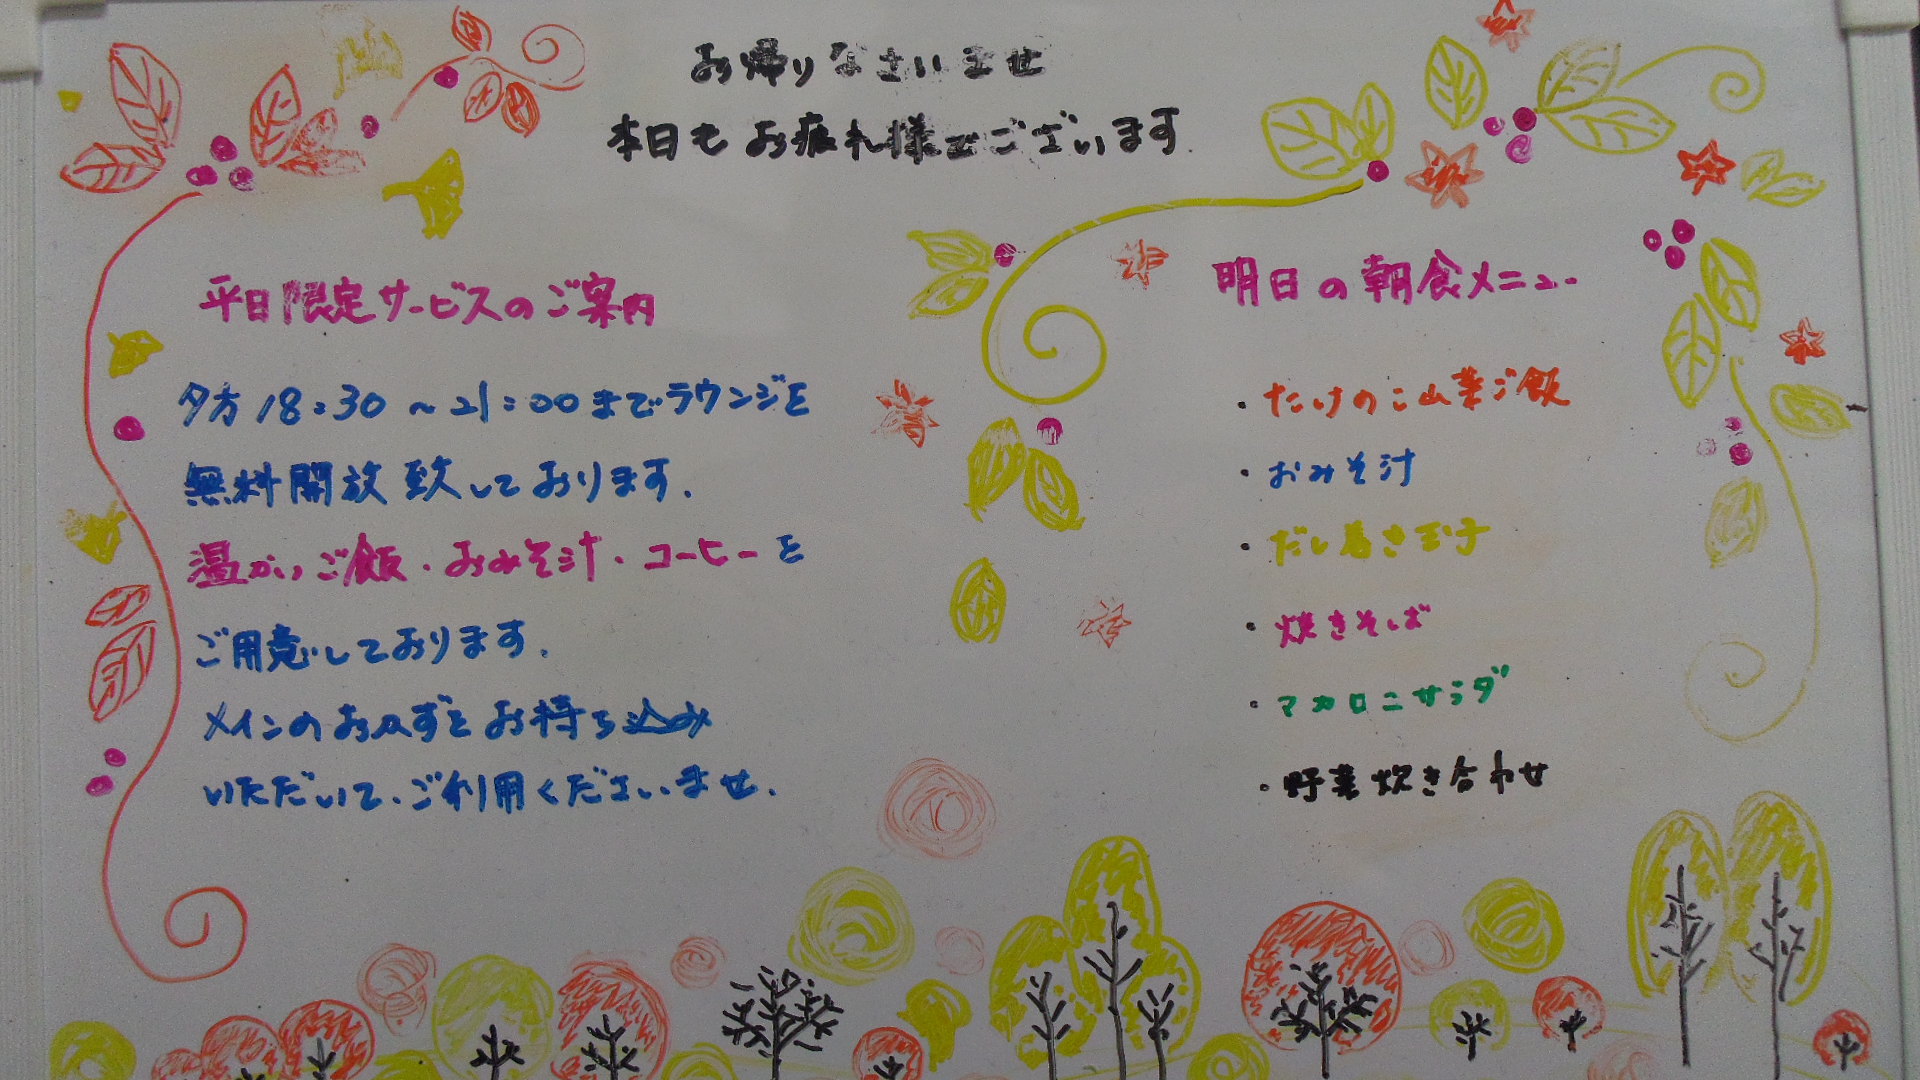 お帰りなさいませ
本日もお疲れ様でございます
平日限定サービスのご案内
夕方18:30～21:00までラウンジを
無料開放致しております.
温かいご飯・おみそ汁・コーヒーを
ご用意しております.
メインのおかずをお持ち込み
いただいて、ご利用くださいませ.
明日の朝食メニュー
・たけのこ山菜ご飯
・おみそ汁
・だし巻き玉子
・焼きそば
・マカロニサラダ
・野菜炊き合わせ